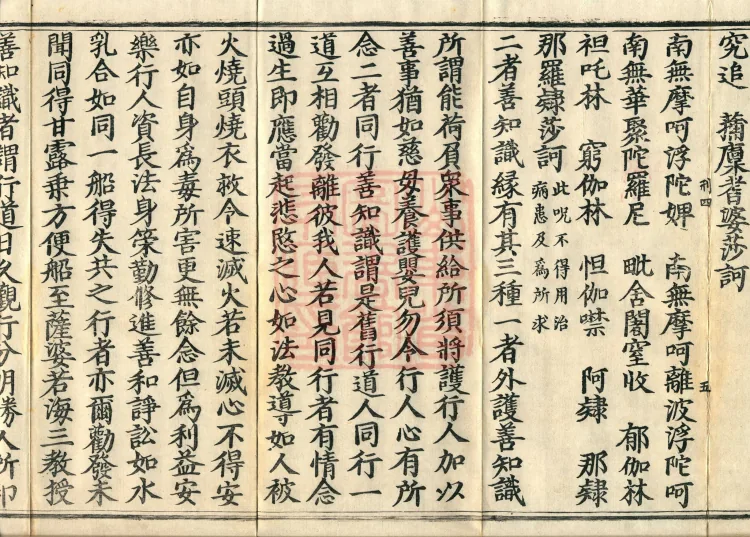 究追　廩耆婆莎訶
刑四　五
南無摩呵浮陀婢　南無摩呵離波浮陀呵
南無華聚陀羅尼　毗舍闍窒收　郁伽林
袒吒林　窮伽林　怛伽噤　阿隸　那隸
那羅隸莎訶
此呪不得用治
病患及爲所求
二者善知識緣有其三種一者外護善知識
所謂能荷負衆事供給所須將護行人加以
善事猶如慈母養護嬰兒勿令行人心有所
念二者同行善知識謂是舊行道人同行一
道互相勸發離彼我人若見同行者有情念
過生即應當起悲愍之心如法教導如人被
火燒頭燒衣救令速滅火若未滅心不得安
亦如自身爲毒所害更無餘念但爲利益安
樂行人資長法身策勤修進善和諍訟如水
乳合如同一船得失共之行者亦爾勸發未
聞同得甘露乗方便船至薩婆若海三教授
善知識者謂行道日久觀行分明勝人所印